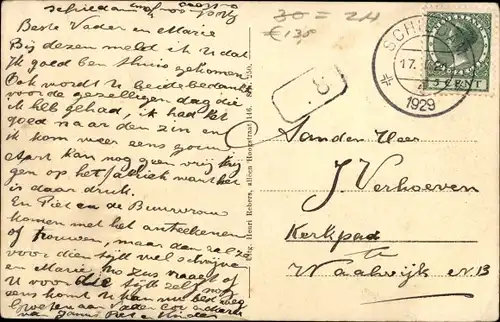 Schiedam
Beste Vader en Marie
Bij dezen meld ik u dat
ik goed ben thuis gekomen
Ook wordt u beide bedankt
voor de gezelligen dag die
ik heb gehad, ik had het
goed naar den zin en
ik kom weer eens gouw
kan nog geen vrij krij
gen op het fabriek want het
is daar druk.
En Piet en de Buurvrouw
komen met het aanteekenen
of trouwen, maar dan zal ze
voor dien tijd wel schrijven
en Marie, zus naaest of
u voor die tijd zelf nog
eens komt u kan nu best weg
Groeten aan Vader
van Janus Piet en kinder
30 = 24
€ 135
8
SCHIEDAM
17.
4
1929
5 CENT
Uitg. Henri Robers, alleen Hoogstraat 146. Tel. 250.
Aan den Heer
J. Verhoeven
Kerkpad
te
Waalwijk N.B